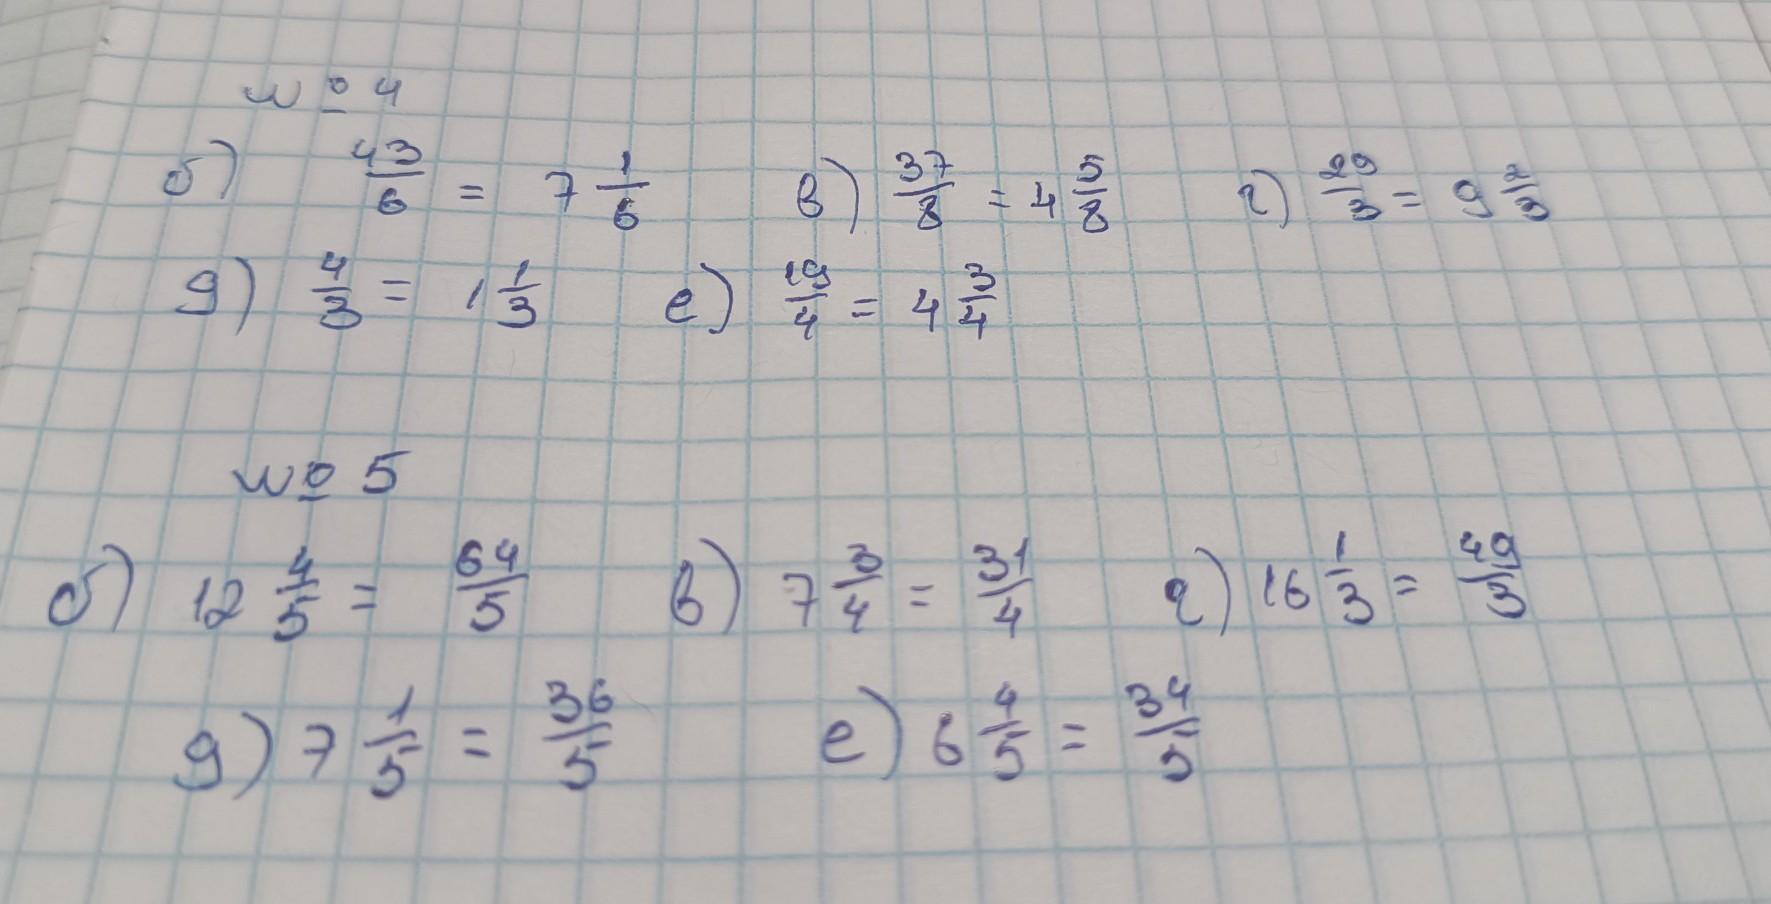 № 4
б) 43/6 = 7 1/6 в) 37/8 = 4 5/8 г) 29/3 = 9 2/3
д) 4/3 = 1 1/3 е) 19/4 = 4 3/4
№ 5
б) 12 4/5 = 64/5 в) 7 3/4 = 31/4 г) 16 1/3 = 49/3
д) 7 1/5 = 36/5 е) 6 4/5 = 34/5